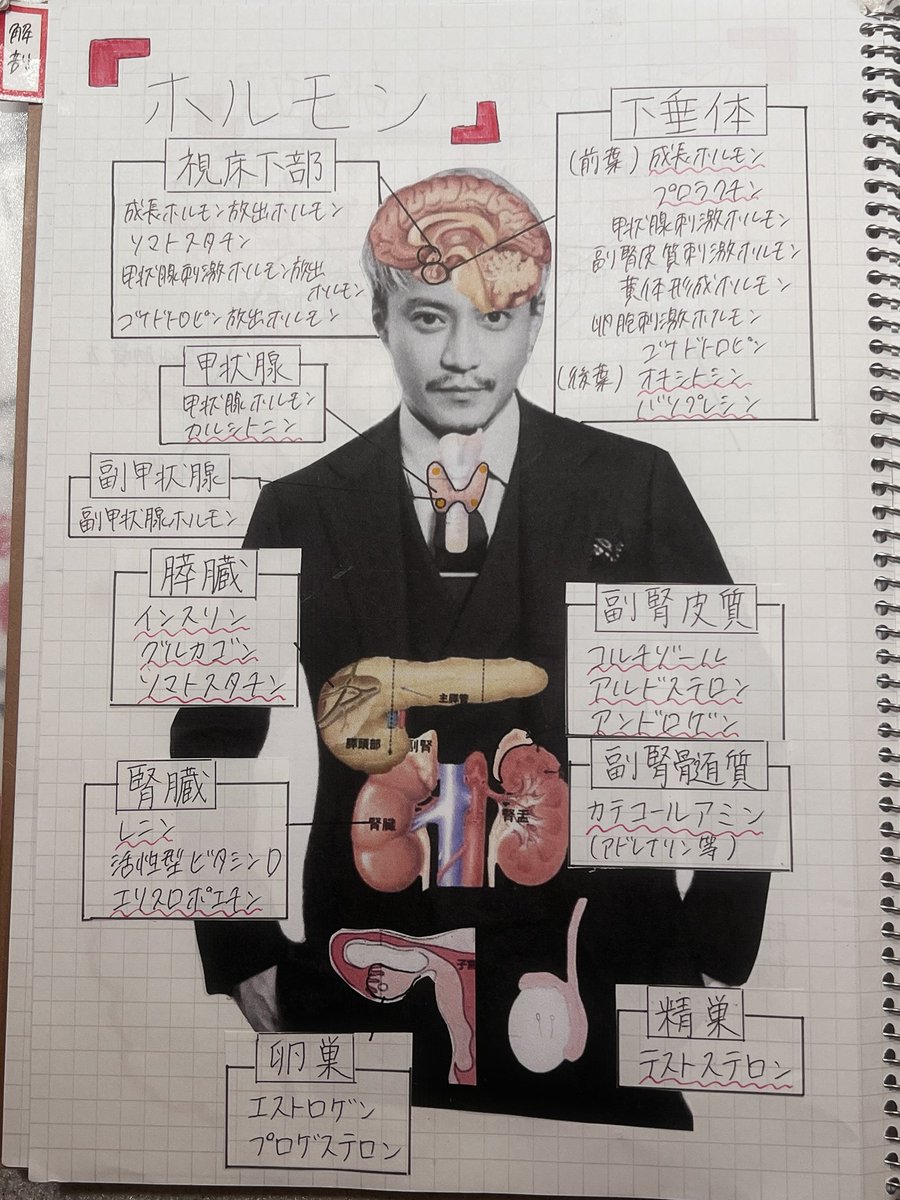 解剖
ホルモン
視床下部
成長ホルモン放出ホルモン
ソマトスタチン
甲状腺刺激ホルモン放出
ホルモン
ゴナドトロピン放出ホルモン
下垂体
(前葉)成長ホルモン
プロラクチン
甲状腺刺激ホルモン
副腎皮質刺激ホルモン
黄体形成ホルモン
卵胞刺激ホルモン
ゴナドトロピン
(後葉)オキシトシン
バソプレシン
甲状腺
甲状腺ホルモン
カルシトニン
副甲状腺
副甲状腺ホルモン
膵臓
インスリン
グルカゴン
ソマトスタチン
主膵管
膵頭部
副腎
副腎皮質
コルチゾール
アルドステロン
アンドロゲン
副腎髄質
カテコールアミン
(アドレナリン等)
腎臓
レニン
活性型ビタミンD
エリスロポエチン
腎臓
腎盂
卵巣
エストロゲン
プロゲステロン
精巣
テストステロン